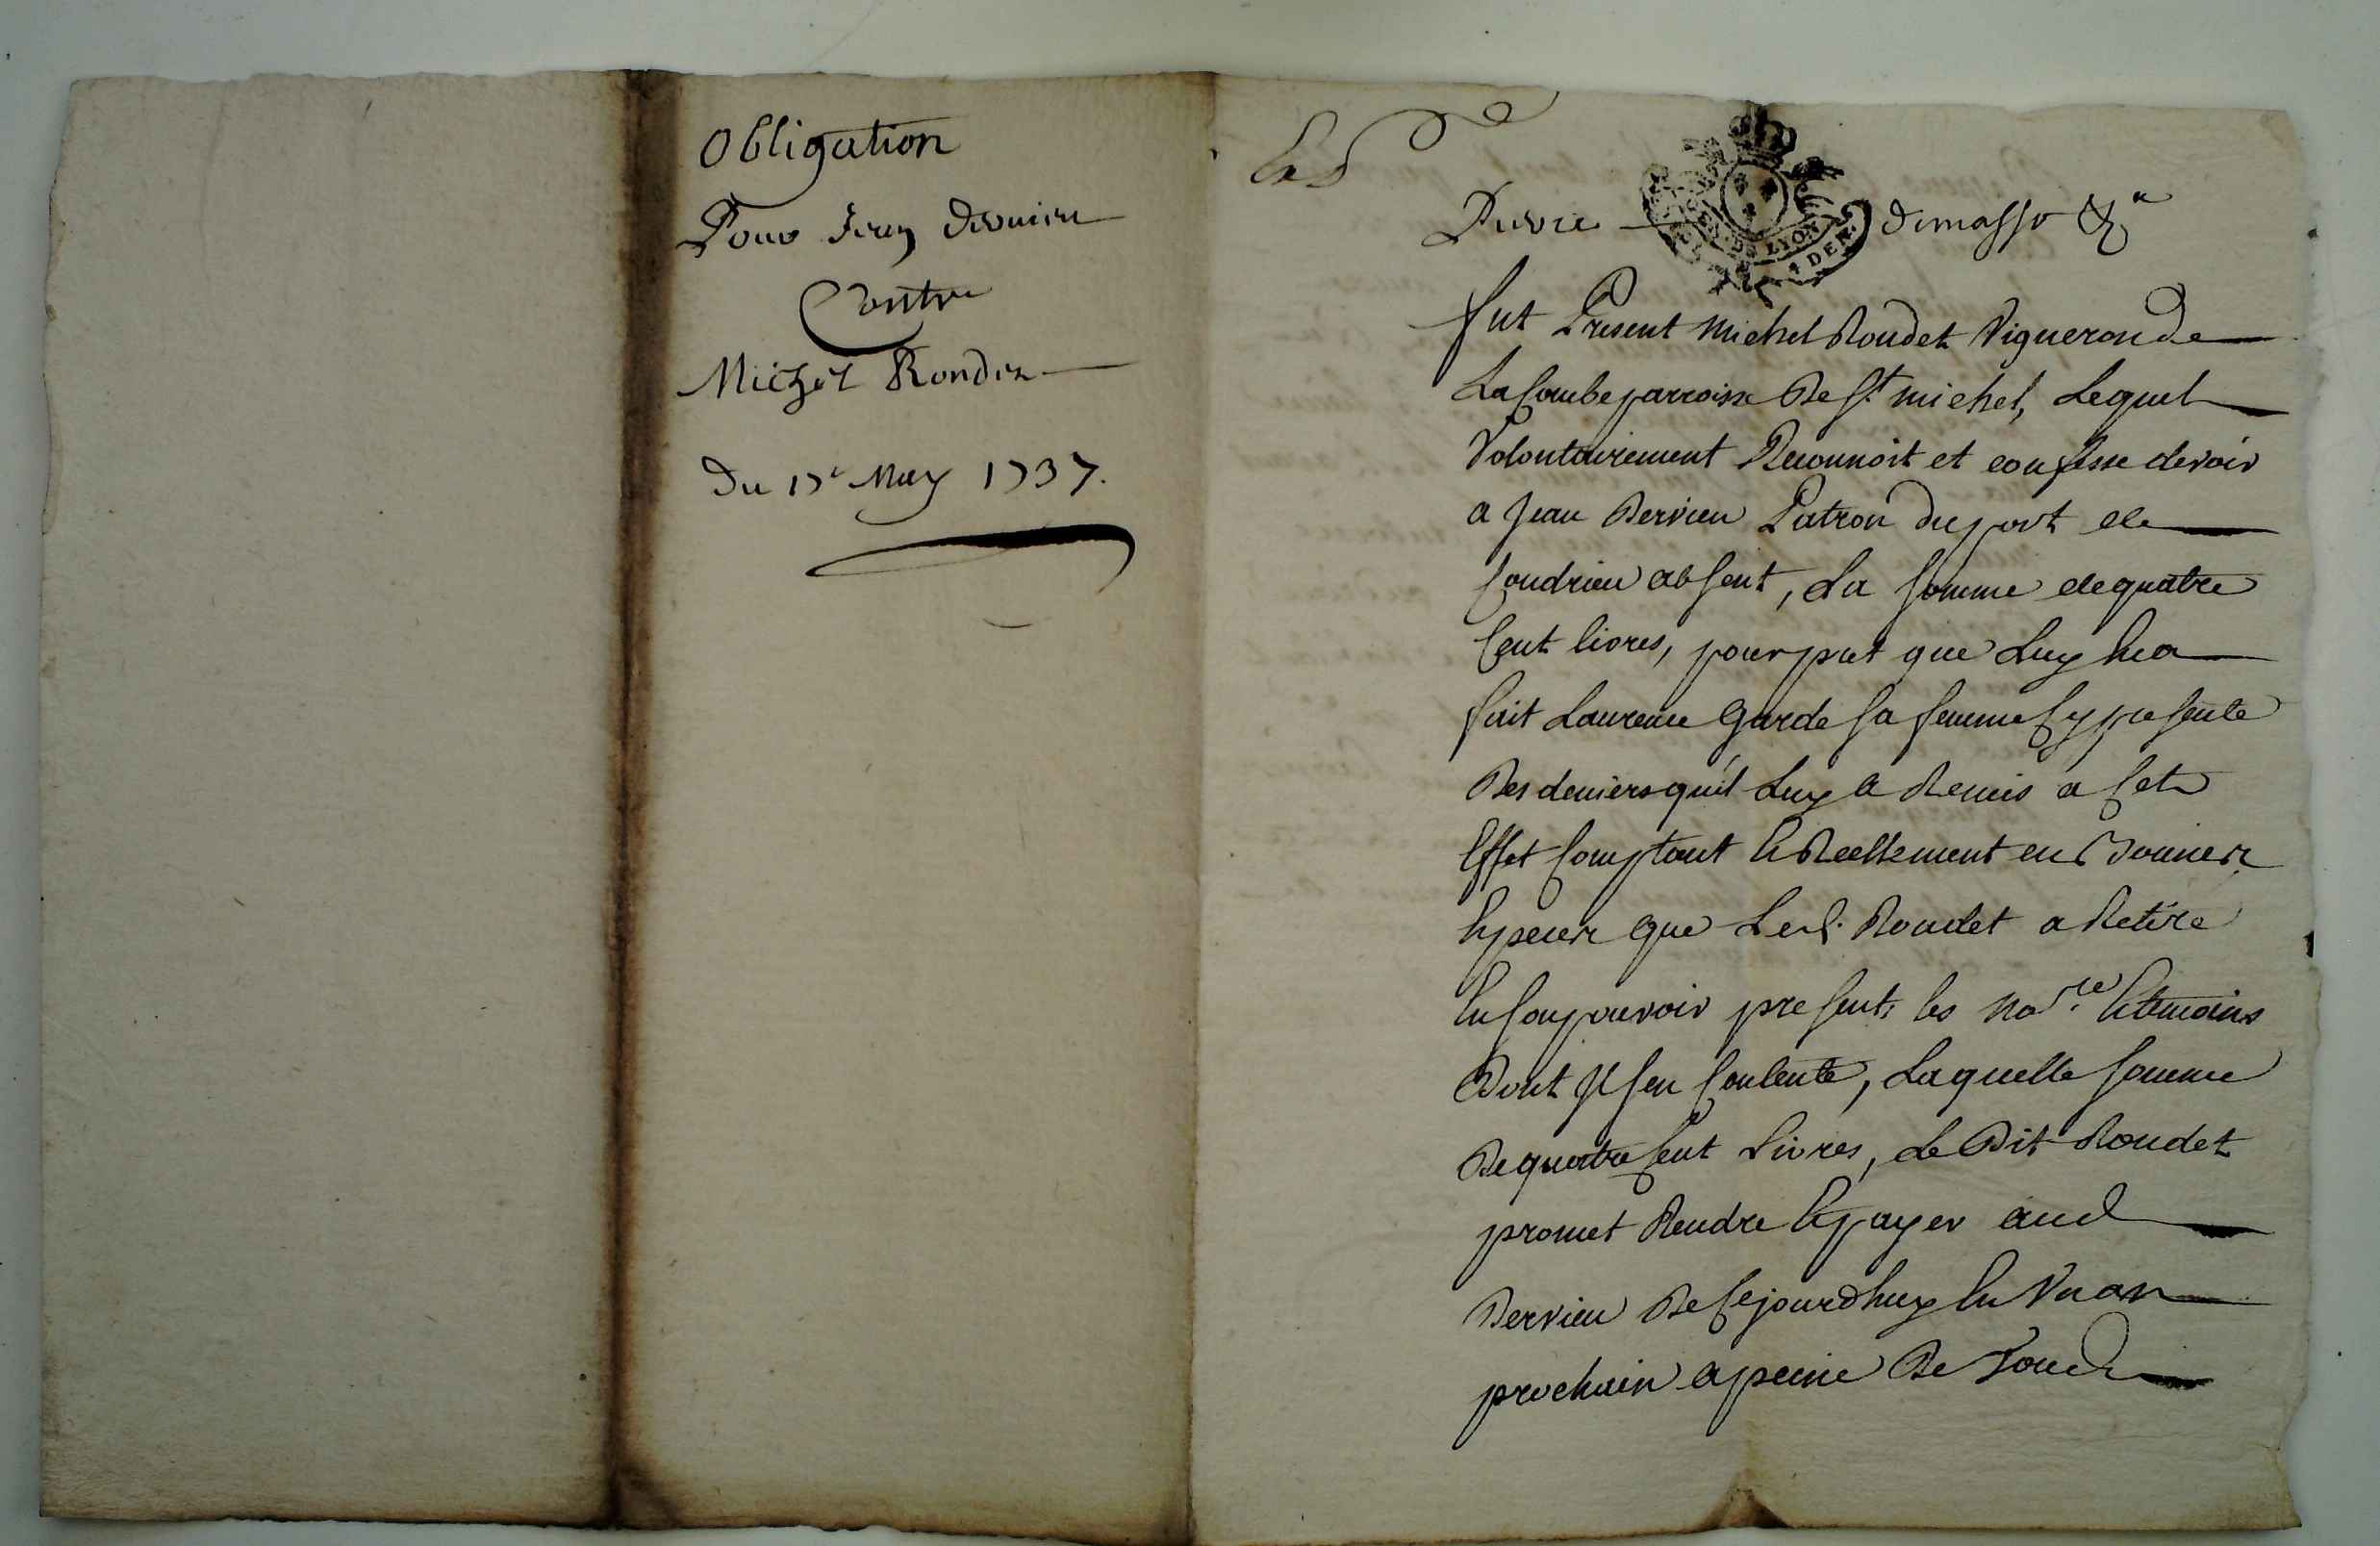 Obligation
Pour Jean Dervieu
Contre
Michel Rondet
Du 17e May 1737.
GEN. DE LYON
4 DEN.
fut Present Michel Rondet Vigneron de
La Combe parroisse De St. michel, Lequel
Volontairement Reconnoit et confesse devoir
a Jean Dervieu Patron du port de
Condrieu absent, La somme de quatre
Cent livres, pour pret que Luy ha
fait Laurence Garde sa femme Cy presente
Des deniers qu'il Luy a Remis a Cet
Effet Comptant & Reellement en
que Led. Rondet a Retire
En son pouvoir presents les No.re & temoins
Dont Il sen Contente, Laquelle somme
De quatre Cent Livres, Le Dit Rondet
promet Rendre & payer aud
Dervieu De Cejourdhuy En Un an
prochain a peine De Tous